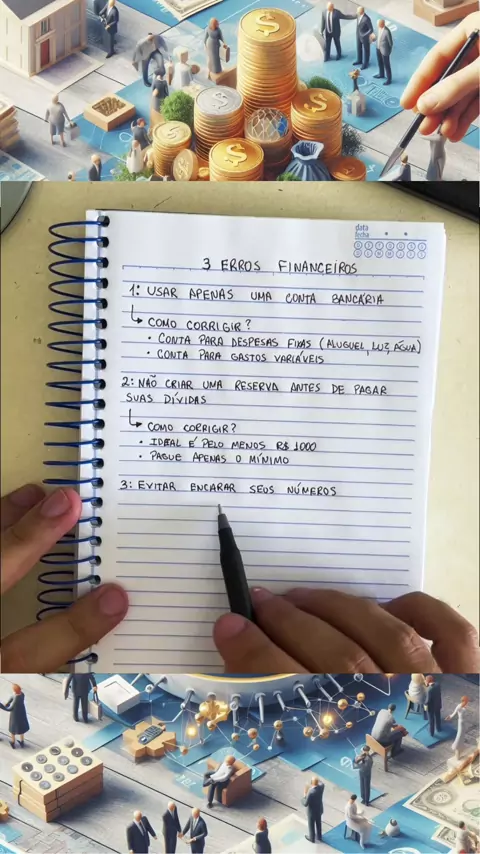 data
fecha
3 ERROS FINANCEIROS
1: USAR APENAS UMA CONTA BANCÁRIA
COMO CORRIGIR?
• CONTA PARA DESPESAS FIXAS (ALUGUEL, LUZ, ÁGUA)
• CONTA PARA GASTOS VARIÁVEIS
2: NÃO CRIAR UMA RESERVA ANTES DE PAGAR
SUAS DÍVIDAS
COMO CORRIGIR?
• IDEAL É PELO MENOS R$ 1000
• PAGUE APENAS O MÍNIMO
3: EVITAR ENCARAR SEUS NÚMEROS